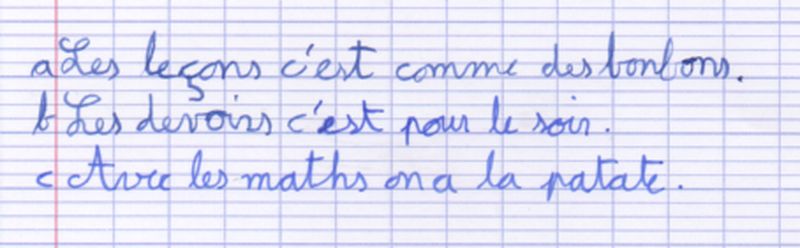 a Les leçons c'est comme des bonbons.
b Les devoirs c'est pour le soir.
c Avec les maths on a la patate.